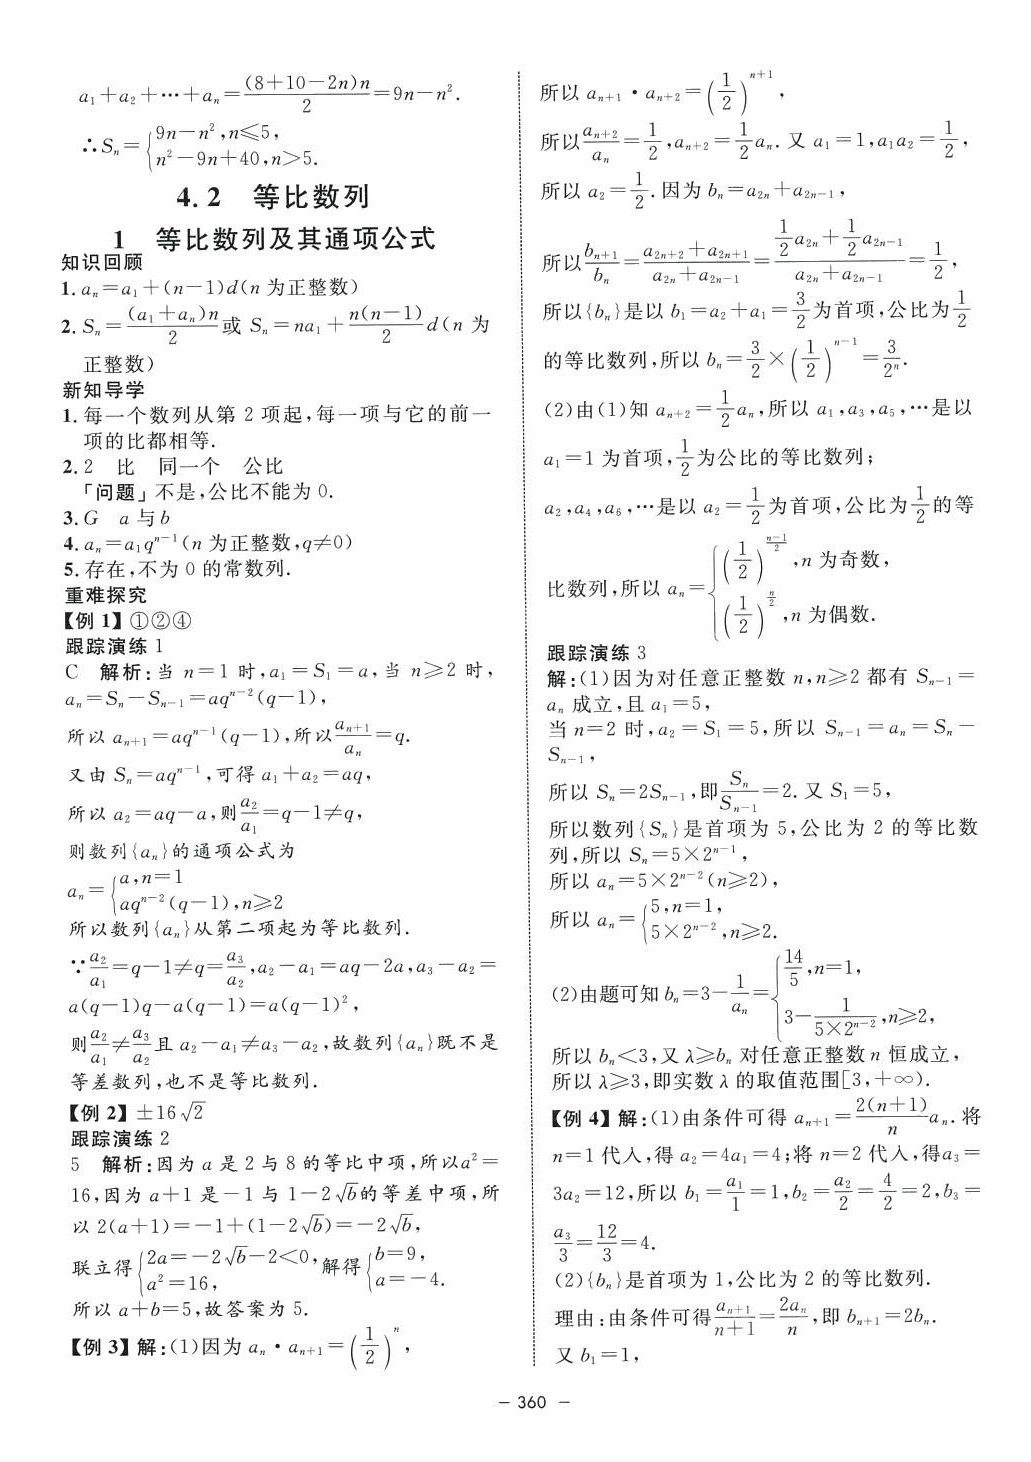 a₁+a₂+…+aₙ=(8+10−2n)n/2=9n−n².
∴Sₙ={9n−n²,n≤5,
n²−9n+40,n>5.
4.2 等比数列
1 等比数列及其通项公式
知识回顾
1.aₙ=a₁+(n−1)d(n 为正整数)
2.Sₙ=(a₁+aₙ)n/2或 Sₙ=na₁+n(n−1)/2 d(n 为
正整数)
新知导学
1.每一个数列从第 2 项起,每一项与它的前一
项的比都相等.
2.2 比 同一个 公比
「问题」不是,公比不能为 0.
3.G a 与 b
4.aₙ=a₁qⁿ⁻¹(n 为正整数,q≠0)
5.存在,不为 0 的常数列.
重难探究
【例 1】①②④
跟踪演练 1
C 解析:当 n=1 时,a₁=S₁=a,当 n≥2 时,
aₙ=Sₙ−Sₙ₋₁=aqⁿ⁻²(q−1),
所以 aₙ₊₁=aqⁿ⁻¹(q−1),所以aₙ₊₁/aₙ=q.
又由 Sₙ=aqⁿ⁻¹,可得 a₁+a₂=aq,
所以 a₂=aq−a,则a₂/a₁=q−1≠q,
则数列{aₙ}的通项公式为
aₙ={a,n=1
aqⁿ⁻²(q−1),n≥2
所以数列{aₙ}从第二项起为等比数列.
∵a₂/a₁=q−1≠q=a₃/a₂,a₂−a₁=aq−2a,a₃−a₂=
a(q−1)q−a(q−1)=a(q−1)²,
则a₂/a₁≠a₃/a₂且 a₂−a₁≠a₃−a₂,故数列{aₙ}既不是
等差数列,也不是等比数列.
【例 2】±16√2
跟踪演练 2
5 解析:因为 a 是 2 与 8 的等比中项,所以a²=
16,因为 a+1 是−1 与 1−2√b的等差中项,所
以 2(a+1)=−1+(1−2√b)=−2√b,
联立得{2a=−2√b−2<0, a²=16,解得{b=9, a=−4.
所以 a+b=5,故答案为 5.
【例 3】解:(1)因为 aₙ•aₙ₊₁=(1/2)ⁿ,
所以 aₙ₊₁•aₙ₊₂=(1/2)ⁿ⁺¹,
所以aₙ₊₂/aₙ=1/2,aₙ₊₂=1/2 aₙ.又 a₁=1,a₁a₂=1/2,
所以 a₂=1/2.因为 bₙ=a₂ₙ+a₂ₙ₋₁,
所以bₙ₊₁/bₙ=(a₂ₙ₊₂+a₂ₙ₊₁)/(a₂ₙ+a₂ₙ₋₁)=(1/2 a₂ₙ+1/2 a₂ₙ₋₁)/(a₂ₙ+a₂ₙ₋₁)=1/2,
所以{bₙ}是以 b₁=a₂+a₁=3/2为首项,公比为1/2
的等比数列,所以 bₙ=3/2×(1/2)ⁿ⁻¹=3/2ⁿ.
(2)由(1)知 aₙ₊₂=1/2 aₙ,所以 a₁,a₃,a₅,…是以
a₁=1 为首项,1/2为公比的等比数列;
a₂,a₄,a₆,…是以 a₂=1/2为首项,公比为1/2的等
比数列,所以 aₙ={(1/2)^((n−1)/2),n 为奇数,
(1/2)^(n/2),n 为偶数.
跟踪演练 3
解:(1)因为对任意正整数 n,n≥2 都有 Sₙ₋₁=
aₙ 成立,且 a₁=5,
当 n=2 时,a₂=S₁=5,所以 Sₙ₋₁=aₙ=Sₙ−
Sₙ₋₁,
所以 Sₙ=2Sₙ₋₁,即Sₙ/Sₙ₋₁=2.又 S₁=5,
所以数列{Sₙ}是首项为 5,公比为 2 的等比数
列,所以 Sₙ=5×2ⁿ⁻¹,
所以 aₙ=5×2ⁿ⁻²(n≥2),
所以 aₙ={5,n=1,
5×2ⁿ⁻²,n≥2.
(2)由题可知 bₙ=3−1/aₙ={14/5,n=1,
3−1/(5×2ⁿ⁻²),n≥2,
所以 bₙ<3,又 λ≥bₙ 对任意正整数 n 恒成立,
所以 λ≥3,即实数 λ 的取值范围[3,+∞).
【例 4】解:(1)由条件可得 aₙ₊₁=2(n+1)/n aₙ.将
n=1 代入,得 a₂=4a₁=4;将 n=2 代入,得a₃=
3a₂=12,所以 b₁=a₁/1=1,b₂=a₂/2=4/2=2,b₃=
a₃/3=12/3=4.
(2){bₙ}是首项为 1,公比为 2 的等比数列.
理由:由条件可得aₙ₊₁/(n+1)=2aₙ/n,即 bₙ₊₁=2bₙ.
又 b₁=1,
– 360 –